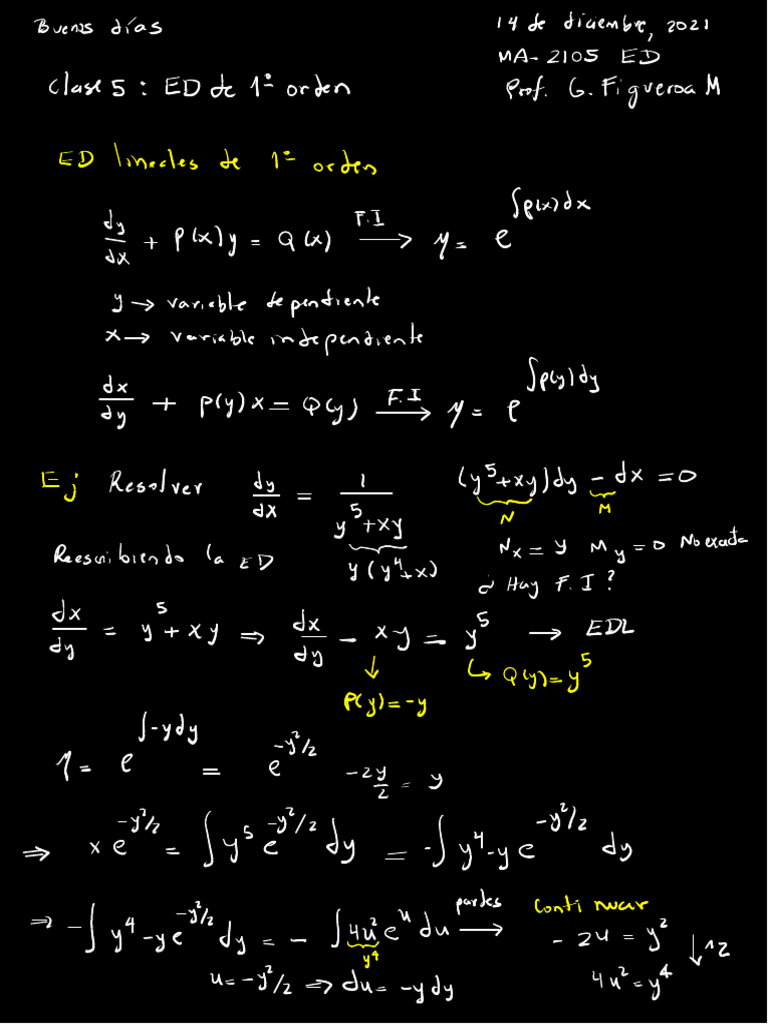 Buenos días
14 de diciembre, 2021
MA-2105 ED
Clase 5 : ED de 1º orden
Prof. G. Figueroa M
ED lineales de 1º orden
dy/dx + P(x)y = Q(x) F.I ⟶ η = e^∫p(x)dx
y → variable dependiente
x → variable independiente
dx/dy + p(y)x = Q(y) F.I ⟶ η = e^∫p(y)dy
Ej Resolver dy/dx = 1/(y⁵+xy)
y(y⁴+x)
(y⁵+xy)dy - dx = 0
N M
Nx = y My = 0 No exacta
¿ Hay F.I ?
Reescribiendo la ED
dx/dy = y⁵ + xy ⇒ dx/dy - xy = y⁵ → EDL
P(y) = -y
↳ Q(y) = y⁵
η = e^∫-ydy = e^-y²/2
-2y/2 = y
⇒ x e^-y²/2 = ∫y⁵e^-y²/2 dy = -∫y⁴-y e^-y²/2 dy
⇒ -∫y⁴-ye^-y²/2 dy = -∫4u²e^u du partes ⟶
y⁴
u = -y²/2 ⇒ du = -ydy
Continuar
-2u = y²
↓^2
4u² = y⁴